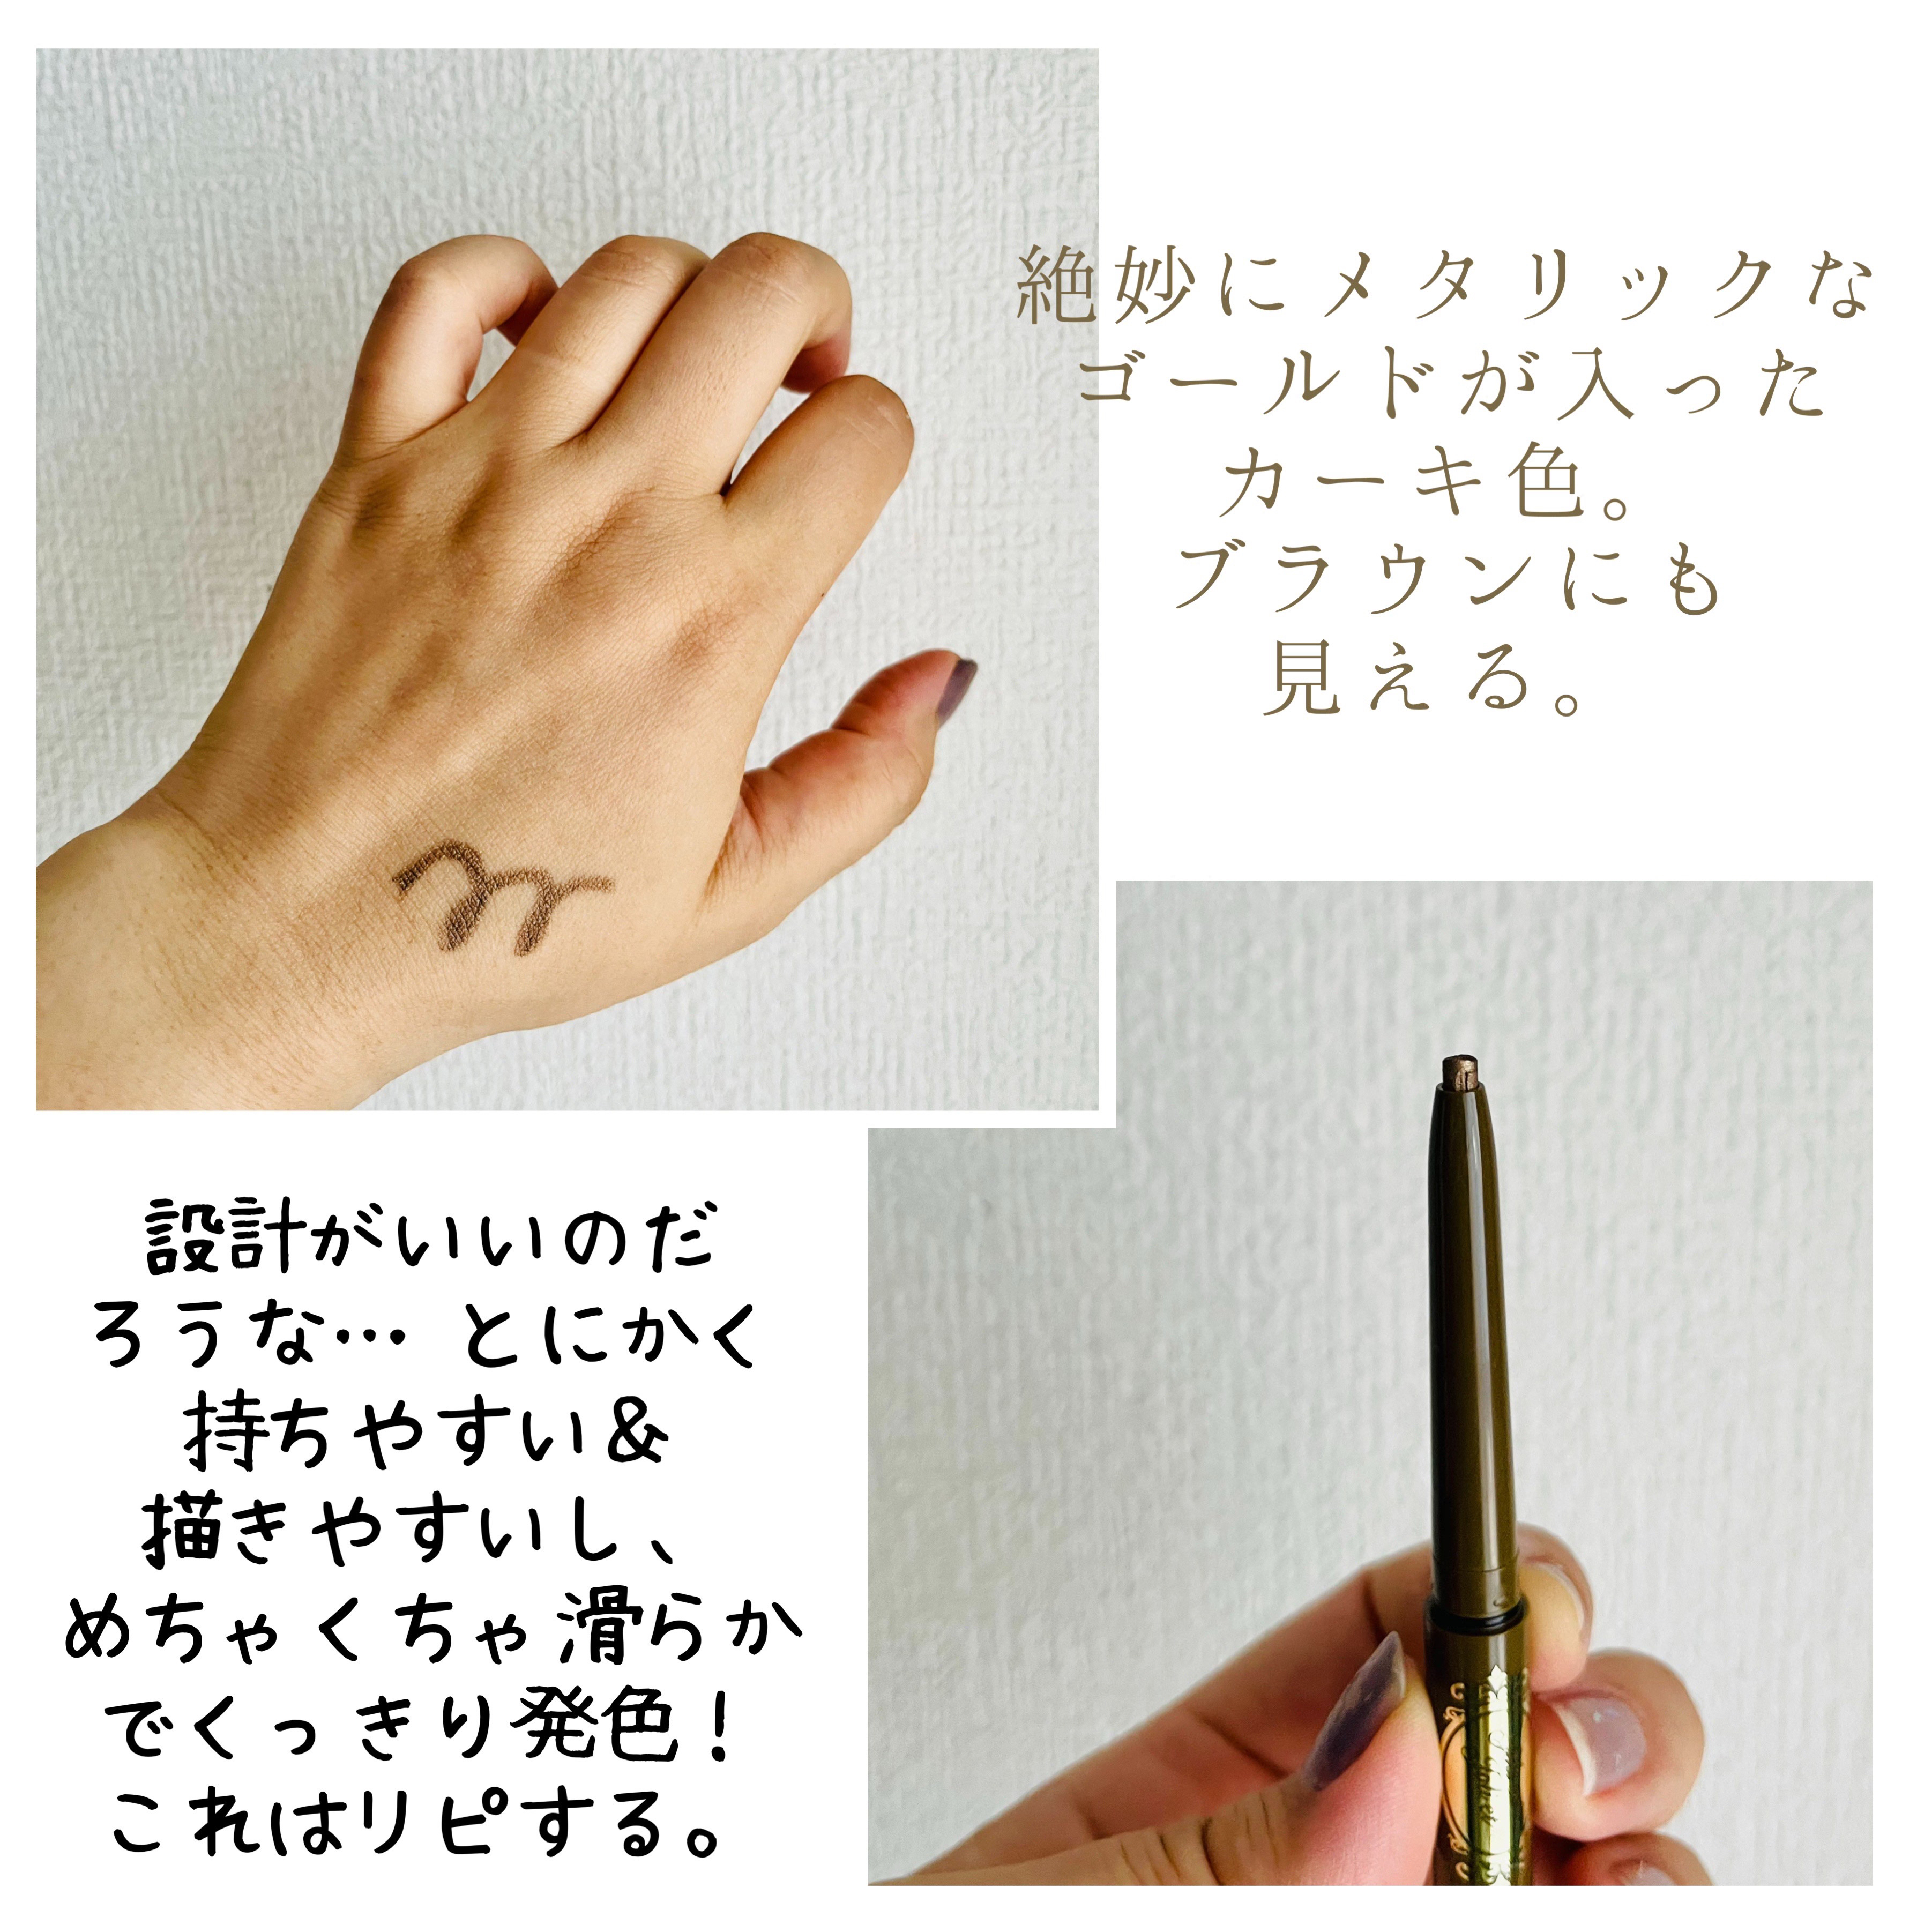 絶妙にメタリックな
ゴールドが入った
カーキ色。
ブラウンにも
見える。
設計がいいのだ
ろうな… とにかく
持ちやすい&
描きやすいし、
めちゃくちゃ滑らか
でくっきり発色！
これはリピする。